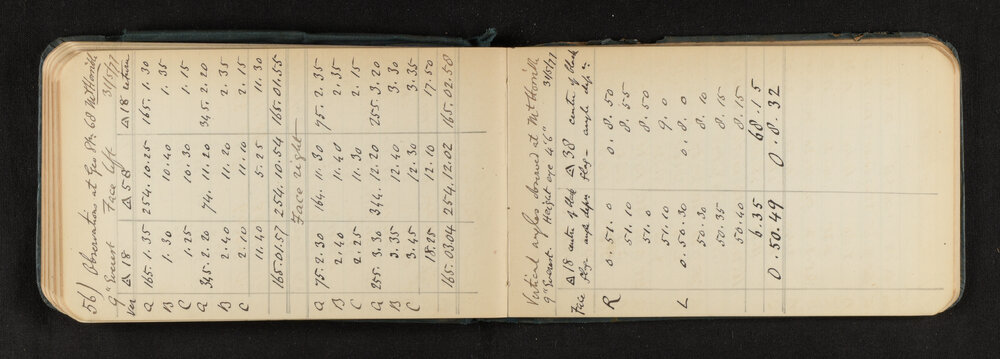 56) Observations at Geo Stn. 68 Mt Horrible
9" Everest Face left 31/5/77
Ver △ 18 △ 58 △ 18 return
A 165.1.35 254.10.25 165.1.30
B 1.30 10.40 1.35
C 1.25 10.30 1.15
A 345.2.20 74.11.20 345.2.20
B 2.40 11.20 2.35
C 2.10 11.10 2.15
11.40 5.25 11.30
165.01.57 254.10.54 165.01.55
Face right
A 75.2.30 164.11.30 75.2.35
B 2.40 11.40 2.35
C 2.25 11.30 2.15
A 255.3.30 344.12.20 255.3.20
B 3.35 12.40 3.30
C 3.45 12.30 3.35
18.25 12.10 17.50
165.03.04 254.12.02 165.02.58
Vertical angles observed at Mt Horrible
9" Everest. Height eye 4'6" 31/5/77
Face △ 18 centre of flag △ 38 centre of flag
flag angle depn flag - angle depn
R 0.51.0 0.8.50
51.10 8.55
51.0 8.50
51.10 9.0
L 0.50.30 0.8.0
50.30 8.10
50.35 8.15
50.40 8.15
6.35 68.15
0.50.49 0.8.32